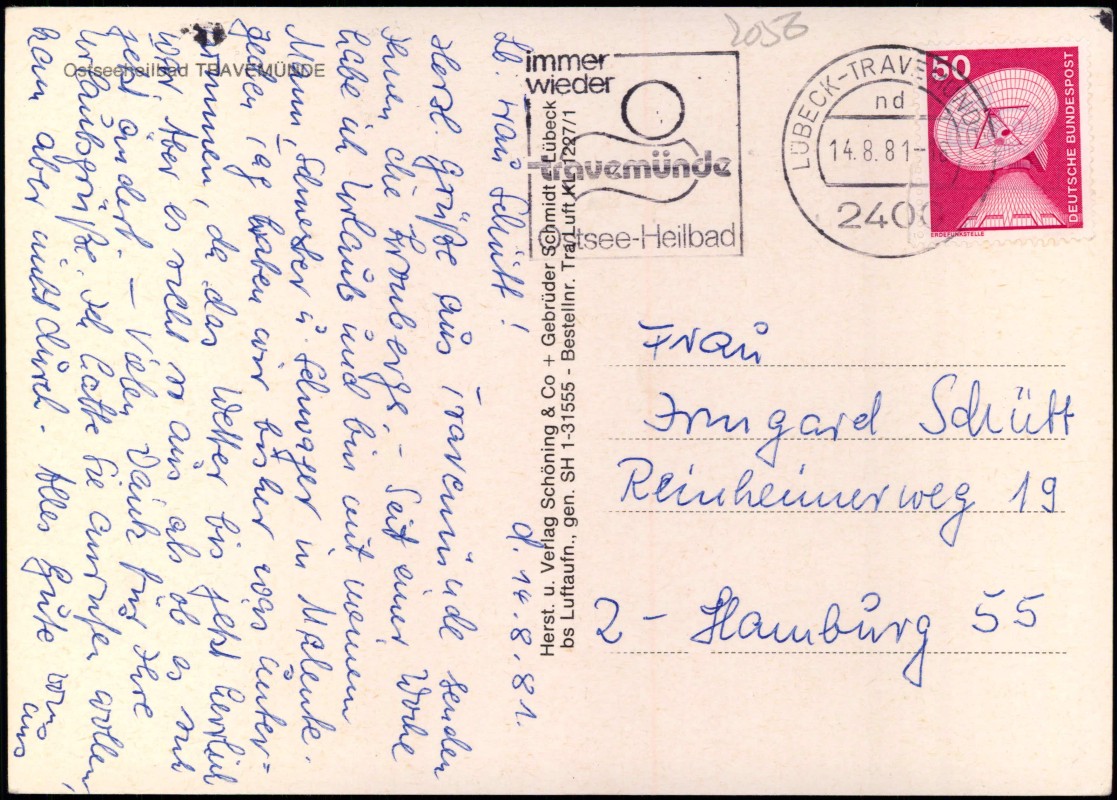 Ostseeheilbad TRAVEMÜNDE
Lb. Frau Schütt! d. 14.8.81.
Herzl. Grüße aus Travemünde sendet
Ihnen die - Seit einer Woche
habe ich Urlaub und bin mit meinem
Mann, Schwester u. Schwager in Malente.
Jeden Tag haben wir bisher was unter=
nommen, da das Wetter bis jetzt herrlich
war. Aber es sieht so aus als ob es sich
jetzt ändert. - Vielen Dank für Ihre
Urlaubsgrüße. Ich hatte Sie anrufen wollen,
kam aber nicht durch. Alles Gute von
uns
Herst. u. Verlag Schöning & Co + Gebrüder Schmidt Lübeck
bs Luftaufn., gen. SH 1-31555 - Bestellnr. Tra/Luft K 1227/1
2056
immer
wieder
travemünde
Ostsee-Heilbad
LÜBECK-TRAVEMÜNDE
nd
14.8.81
2400
50
DEUTSCHE BUNDESPOST
ERDEFUNKSTELLE
Frau
Irmgard Schütt
Reinheimerweg 19
2 - Hamburg 55